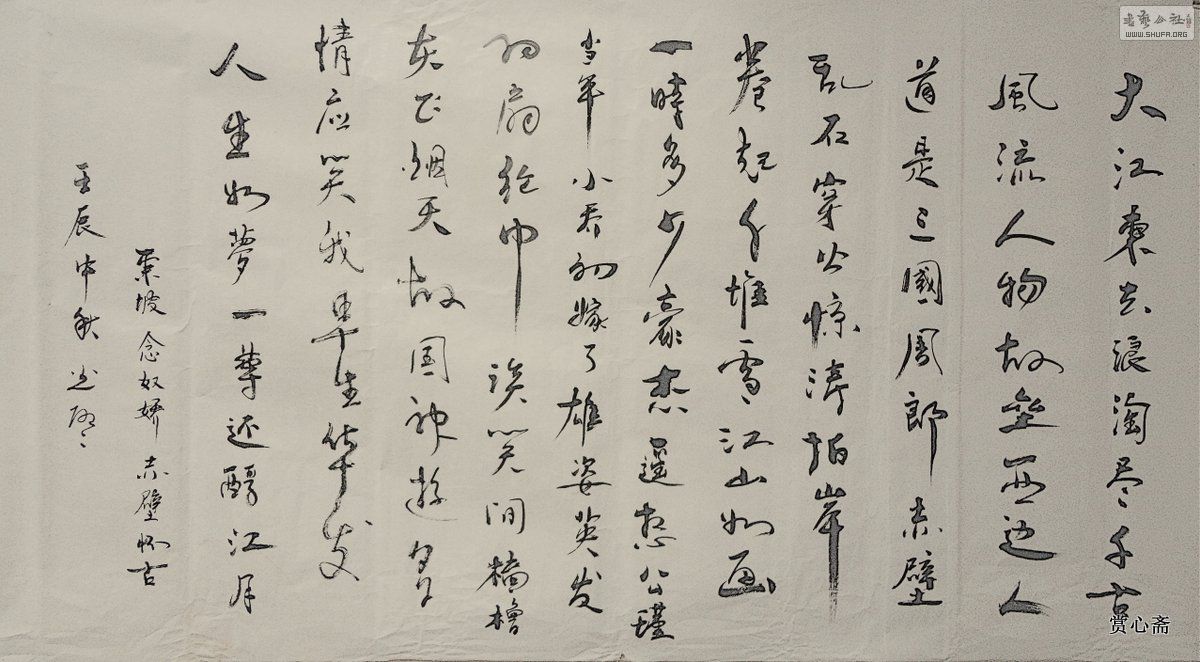 大江東去浪淘尽千古
風流人物故垒西边人
道是三國周郎赤壁
乱石穿公惊涛拍岸
卷起千堆雪江山如画
一時多少豪杰遥想公瑾
当年小乔初嫁了雄姿英发
羽扇纶巾谈笑间樯橹
灰飞烟天故国神游多
情应笑我早生华发
人生如夢一尊还酹江月
東坡念奴娇赤壁怀古
壬辰中秋
书艺公社
WWW.SHUFA.ORG
赏心斋